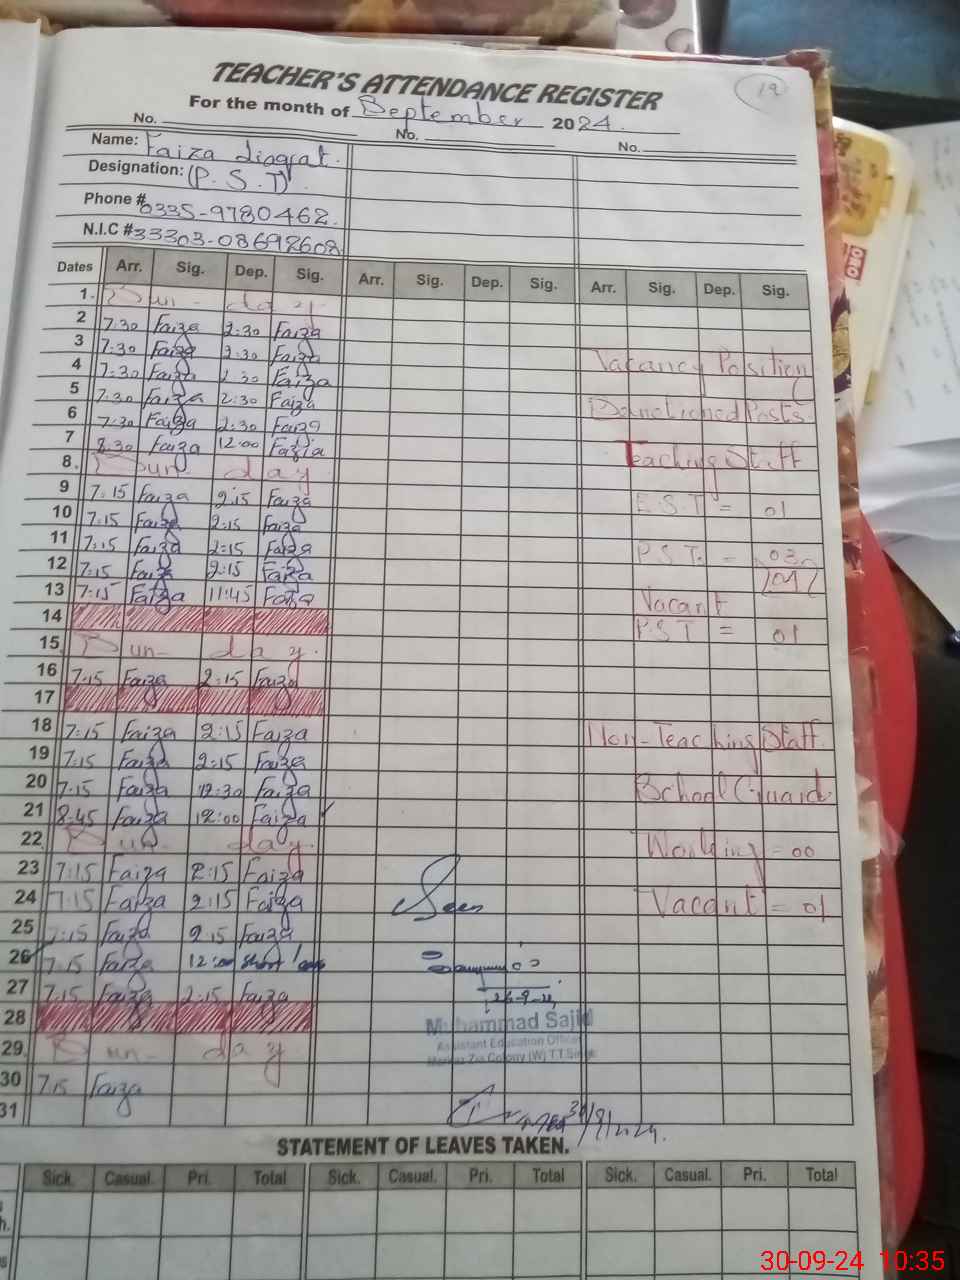 TEACHER'S ATTENDANCE REGISTER
19
For the month of September 2024.
No. No. No.
Name: Faiza Liaqat.
Designation: (P.S.T).
Phone # 0335-9780462.
N.I.C # 33303-08692608
Dates Arr. Sig. Dep. Sig. Arr. Sig. Dep. Sig. Arr. Sig. Dep. Sig.
1. Sun- day
2 7:30 Faiza 2:30 Faiza
3 7:30 Faiza 2:30 Faiza
Vacancy Position
4 7:30 Faiza 2:30 Faiza
5 7:30 Faiza 2:30 Faiza
Sanctioned Posts
6 7:30 Faiza 2:30 Faiza
7 8:30 Faiza 12:00 Fazia
Teaching Staff
8. Sun day
9 7:15 Faiza 2:15 Faiza
E.S.T = 01
10 7:15 Faiza 2:15 Faiza
11 7:15 Faiza 2:15 Faiza
P.S.T. = 03
12 7:15 Faiza 2:15 Faiza
04
13 7:15 Faiza 11:45 Faiza
Vacant
14
P.S.T = 01
15. Sun- day.
16 7:15 Faiza 2:15 Faiza
17
18 7:15 Faiza 2:15 Faiza
Non-Teaching Staff
19 7:15 Faiza 2:15 Faiza
20 7:15 Faiza 12:30 Faiza
School Guard
21 8:45 Faiza 12:00 Faiza
22. Sun- day.
Working = 00
23 7:15 Faiza 2:15 Faiza
24 7:15 Faiza 2:15 Faiza
Seen
Vacant = 01
25 7:15 Faiza 2:15 Faiza
26 7:15 Faiza 12:00 short
27 7:15 Faiza 2:15 Faiza
26-9-24
28
Muhammad Sajid
Assistant Education Officer
29. Sun- day
Markaz Zia Colony (W) T.T.Singh
30 7:15 Faiza
31
30/9/2024.
STATEMENT OF LEAVES TAKEN.
Sick. Casual. Pri. Total Sick. Casual. Pri. Total Sick. Casual. Pri. Total
30-09-24 10:35